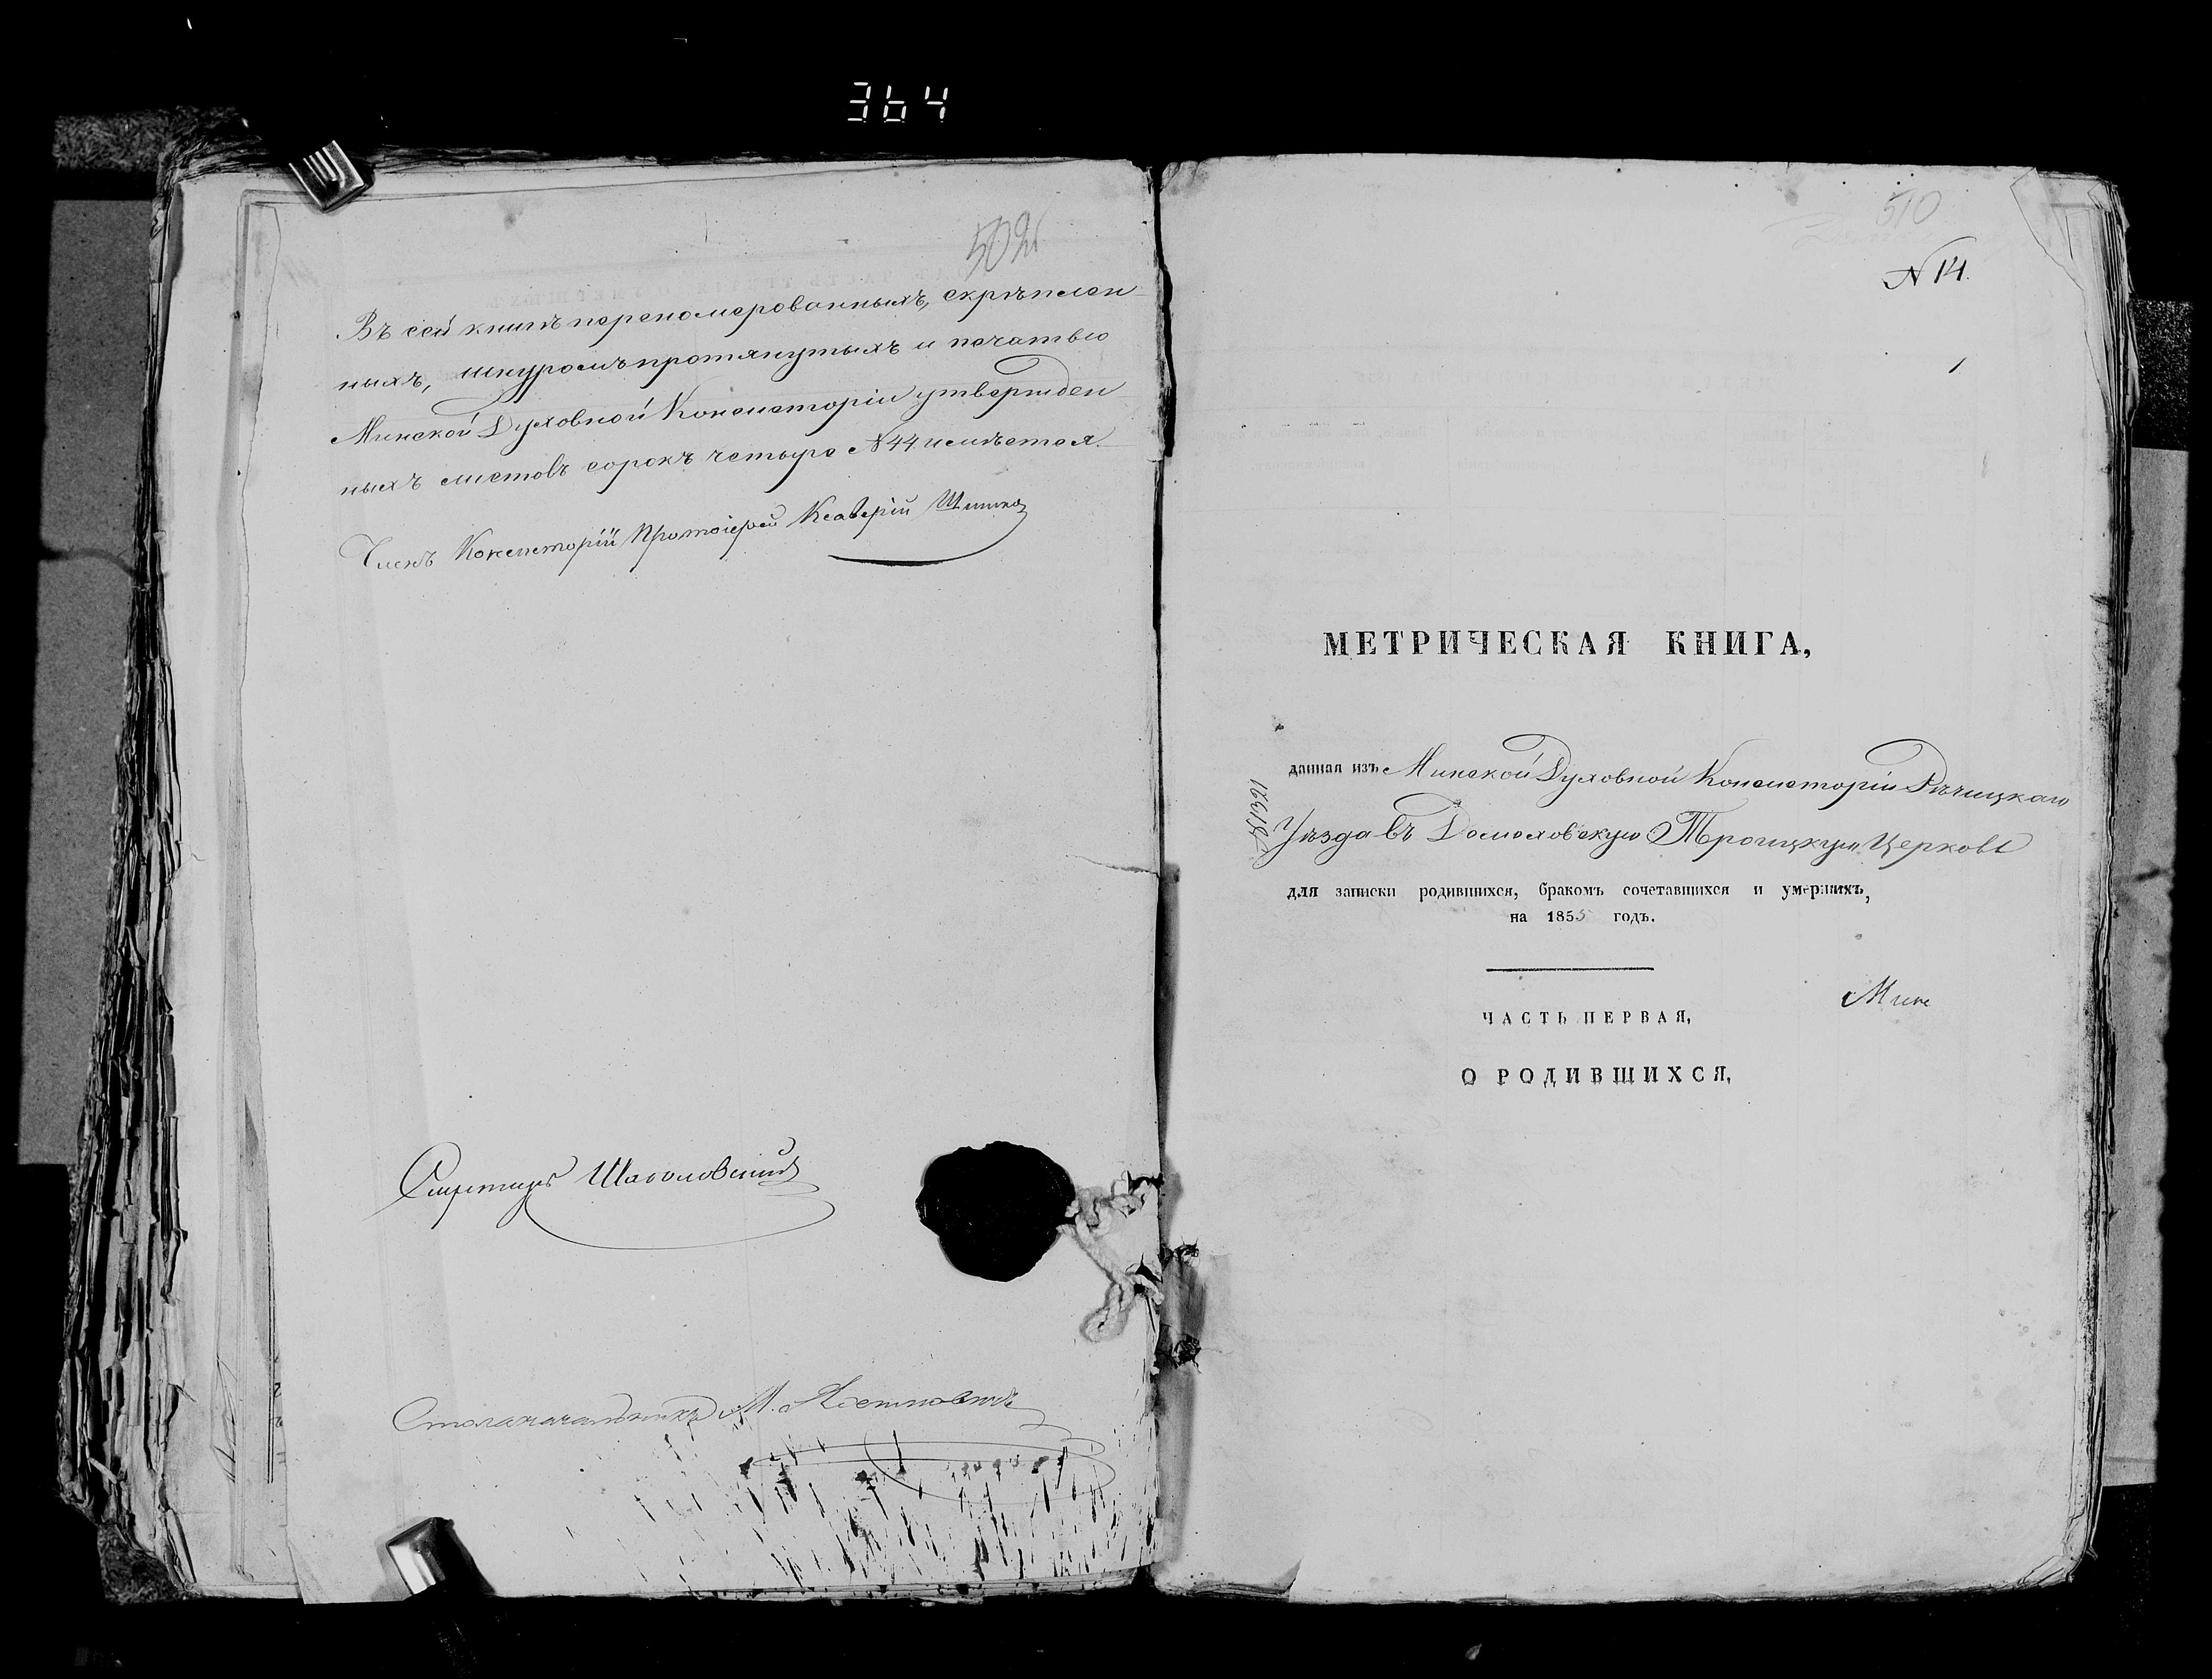 364
Въ сей книгѣ перенομерованныхъ, скрѣплен-
ныхъ, шнуромъ протянутыхъ и печатью
Минской Духовной Консисторіи утвержден-
ныхъ листовъ сорокъ четыре №44 имѣется.
Членъ Консисторіи Протоіерей Ксаверій
Секретарь
Столоначальникъ М.
510
N 14.
1
МЕТРИЧЕСКАЯ КНИГА,
данная изъ Минской Духовной Консисторіи Рѣчицкаго
Уѣзда въ Домамовскую Троицкую Церковь
для записки родившихся, бракомъ сочетавшихся и умершихъ,
на 1855 годъ.
Мин
ЧАСТЬ ПЕРВАЯ,
О РОДИВШИХСЯ,